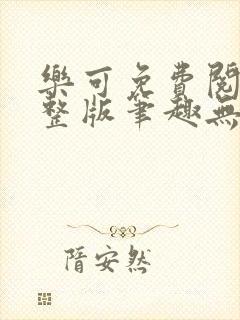 樂可免費閱
整版筆趣無
隋安然